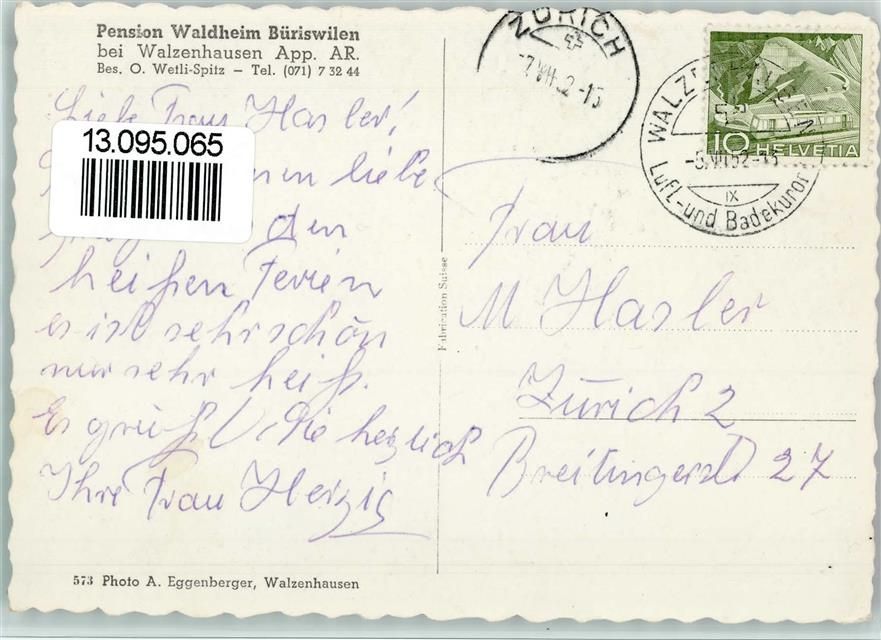 Pension Waldheim Büriswilen
bei Walzenhausen App. AR.
Bes. O. Wetli-Spitz – Tel. (071) 7 32 44
Liebe Frau Hasler!
13.095.065
liebe
den
heißen Ferien
es ist sehr schön
nur sehr heiß.
Es grüßt Sie herzlich
Ihre Frau Herzig
573 Photo A. Eggenberger, Walzenhausen
Fabrication Suisse
ZÜRICH
WALZENHAUSEN
-6.VII.52-
IX
Luft- und Badekurort
10 HELVETIA
Frau
M Hasler
Zürich 2
Breitingerst 27